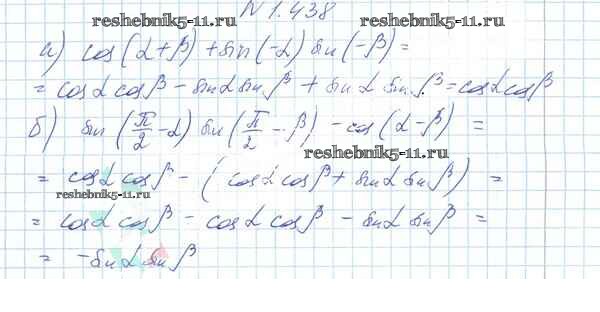 N 1.438
reshebnik5-11.ru reshebnik5-11.ru
а) cos(α+β) + sin(-α) sin(-β) =
= cosα cosβ - sinα sinβ + sinα sinβ = cosα cosβ
б) sin(π/2 - α) sin(π/2 - β) - cos(α-β) =
reshebnik5-11.ru
= cosα cosβ - (cosα cosβ + sinα sinβ) =
reshebnik5-11.ru
= cosα cosβ - cosα cosβ - sinα sinβ =
= - sinα sinβ